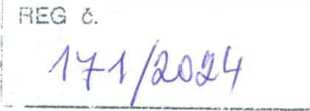 REG č.
171/2024